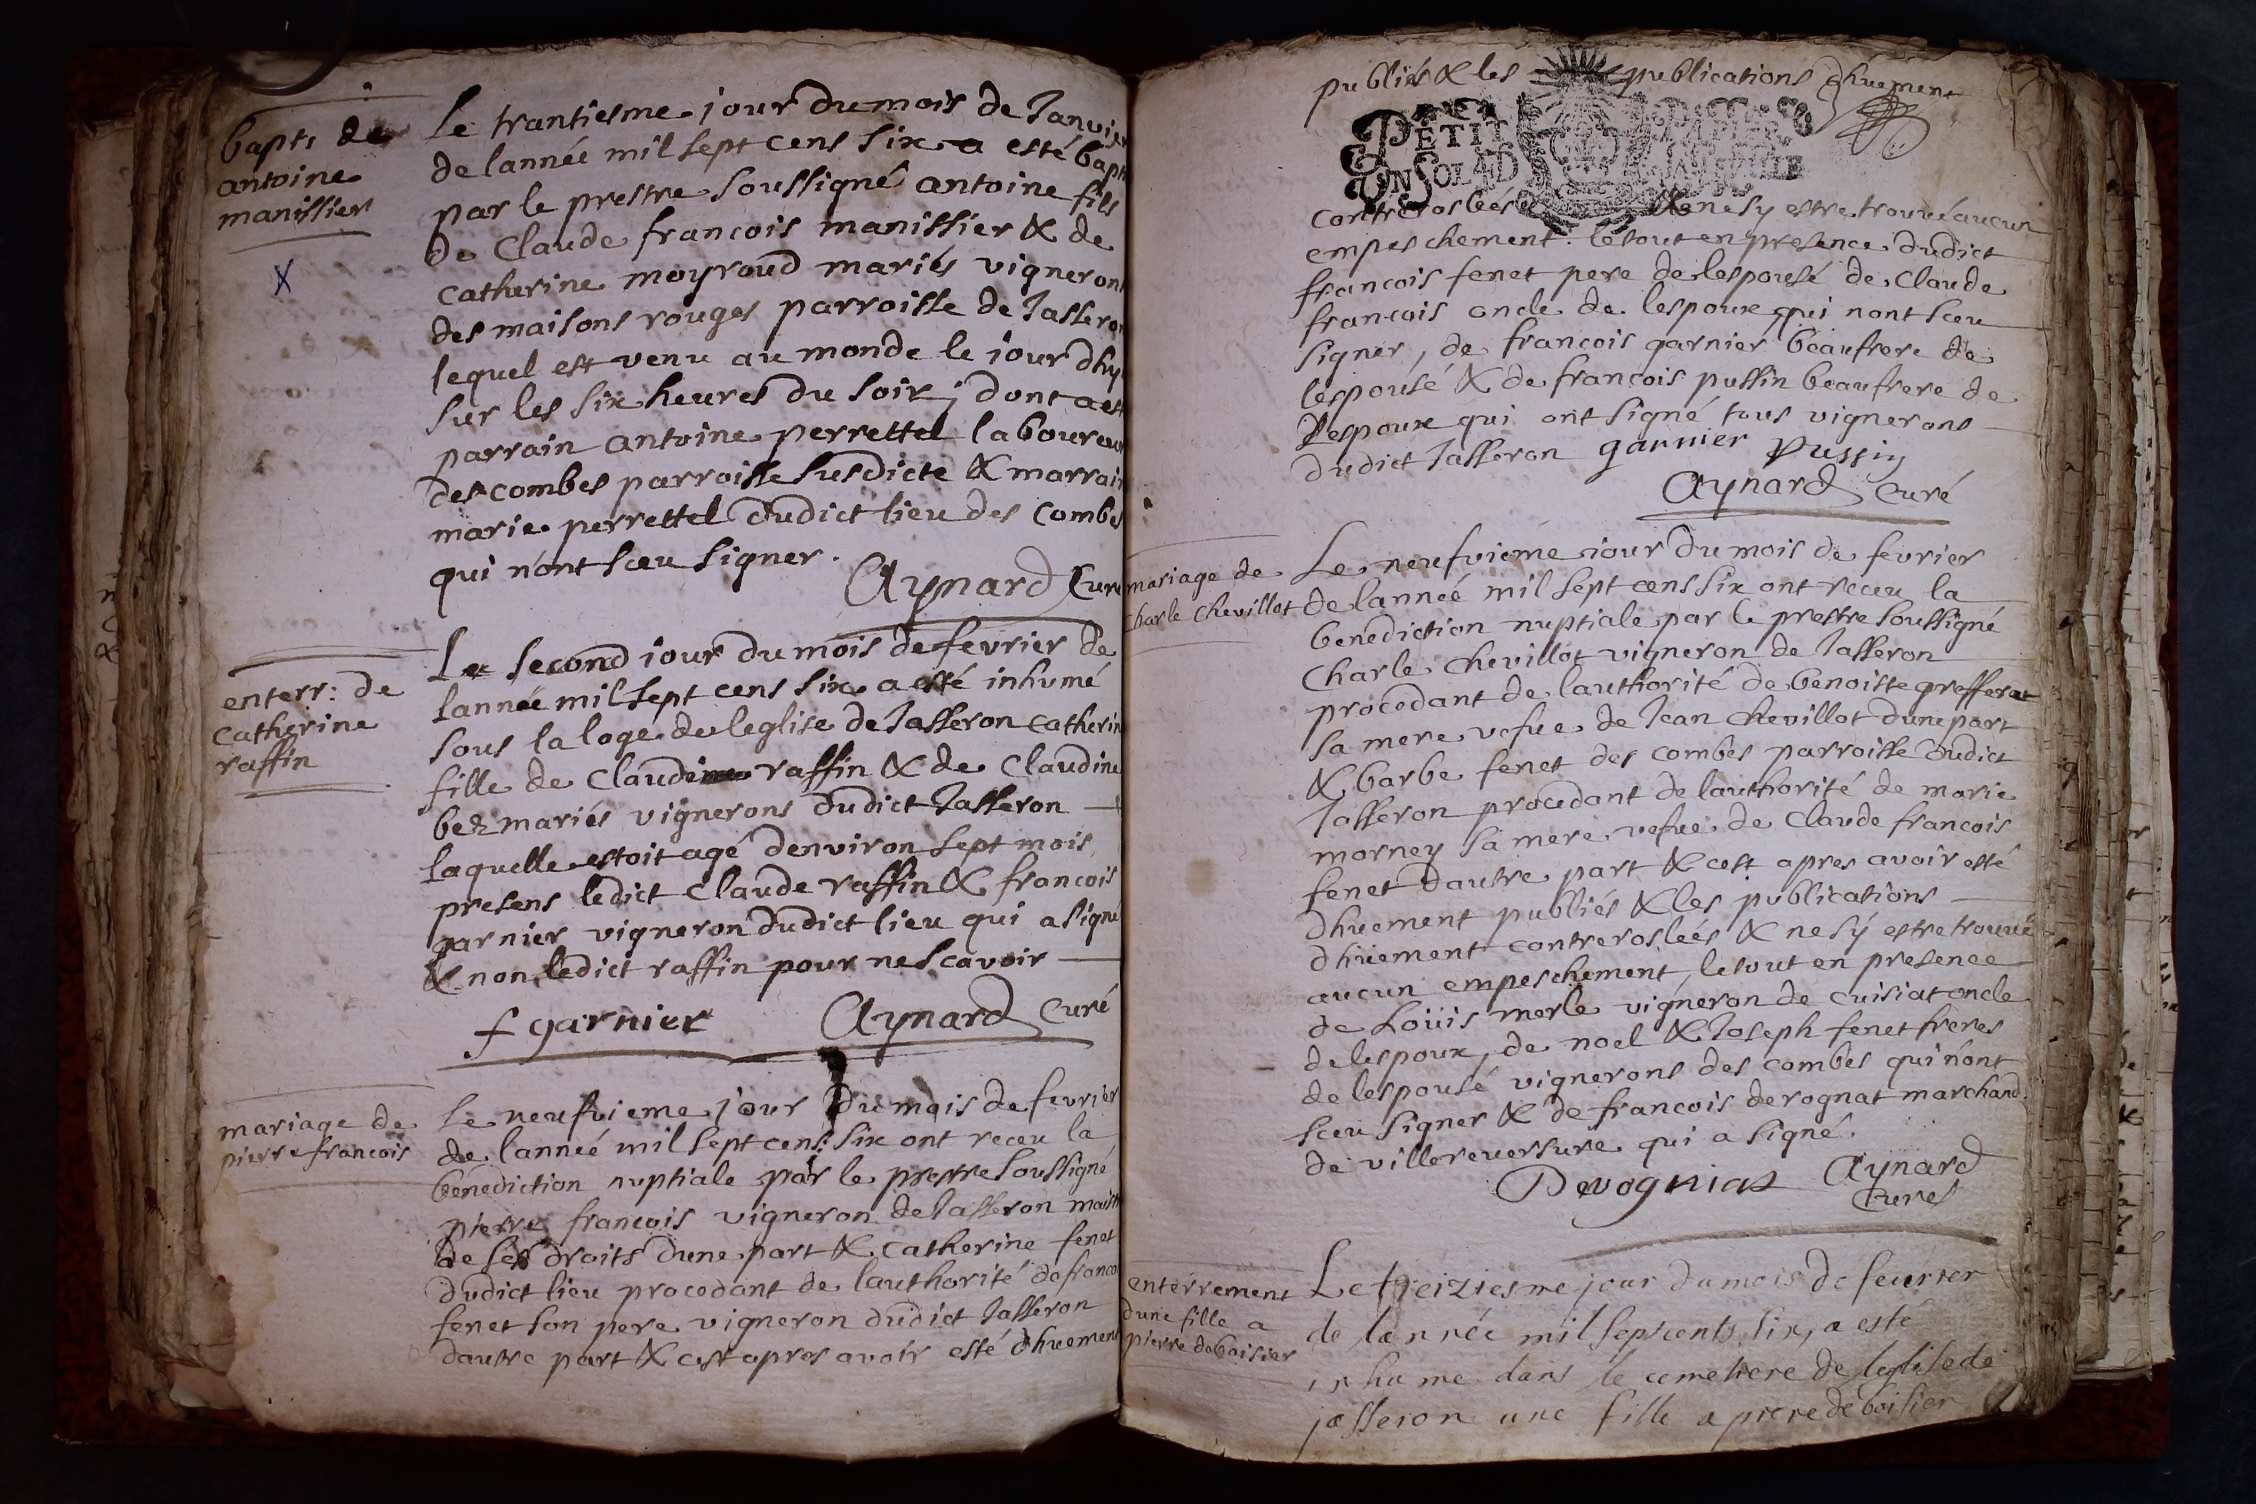 bapt: de
antoine
manissier
Le trantiesme jour du mois de Janvier
de lannée mil sept cens six a esté bapti
par le prestre soussigné antoine fils
de Claude francois manissier & de
catherine moyroud mariés vignerons
des maisons rouges parroisse de Jasseron
lequel est venu au monde le jour dhy
sur les six heures du soir ; dont a est
parrain antoine perrettel laboureur
des combes parroisse susdicte & marrain
marie perrettel dudict lieu des Combes
qui nont sceu signer.
Aynard Curé
enterr: de
catherine
raffin
Le second jour du mois de fevrier de
lannée mil sept cens six a esté inhumé
sous la loge de leglise de Jasseron catherin
fille de Claude raffin & de Claudine
bez mariés vignerons dudict Jasseron
laquelle estoit agé denviron sept mois
presens ledict Claude raffin & francois
garnier vigneron dudict lieu qui a signé
& non ledict raffin pour ne scavoir
f garnier Aynard Curé
mariage de
pierre francois
Le neufvieme jour du mois de fevrier
de lannée mil sept cens six ont receu la
bénediction nuptiale par le prestre soussigné
pierre francois vigneron de Jasseron maistr
de ses droits dune part & catherine fenet
dudict lieu procedant de lauthorité de franco
fenet son pere vigneron dudict Jasseron
dautre part & cest apres avoir esté dhuement
publiés & les publications dhuement
PETIT PAPIER
UN SOL 4D
controroslées & ne sy estre trouvé aucun
empeschement. le tout en presence dudict
francois fenet pere de lespousé de Claude
francois oncle de lespoux qui nont sceu
signer, de francois garnier beaufrere de
lespousé & de francois pussin beaufrere de
lespoux qui ont signé tous vignerons
dudict Jasseron garnier Pussin
Aynard Curé
mariage de
charle chevillot
Le neufvieme jour du mois de fevrier
de lannée mil sept cens six ont receu la
benediction nuptiale par le prestre soussigné
Charle chevillot vigneron de Jasseron
procedant de lauthorité de benoiste grefferat
sa mere vefue de Jean chevillot dune part
& barbe fenet des combes parroisse dudict
Jasseron procedant de lauthorité de marie
morney sa mere vefue de Claude francois
fenet dautre part & cest apres avoir esté
dhuement publiés & les publications
dhuement contreroslées & ne sy estre trouvé
aucun empeschement, le tout en presence
de Loüis merle vigneron de cuisiat oncle
de lespoux, de noel & Joseph fenet freres
de lespousé vignerons des combes qui nont
sceu signer & de francois derognat marchand
de villereversure qui a signé.
Derognat Aynard
Curé
enterrement
dune fille a
pierre deboisier
Le treiziesme jour du mois de feurier
de lannée mil sept cents six, a esté
inhumé dans le cemetiere de leglise de
jasseron une fille a pierre deboisier